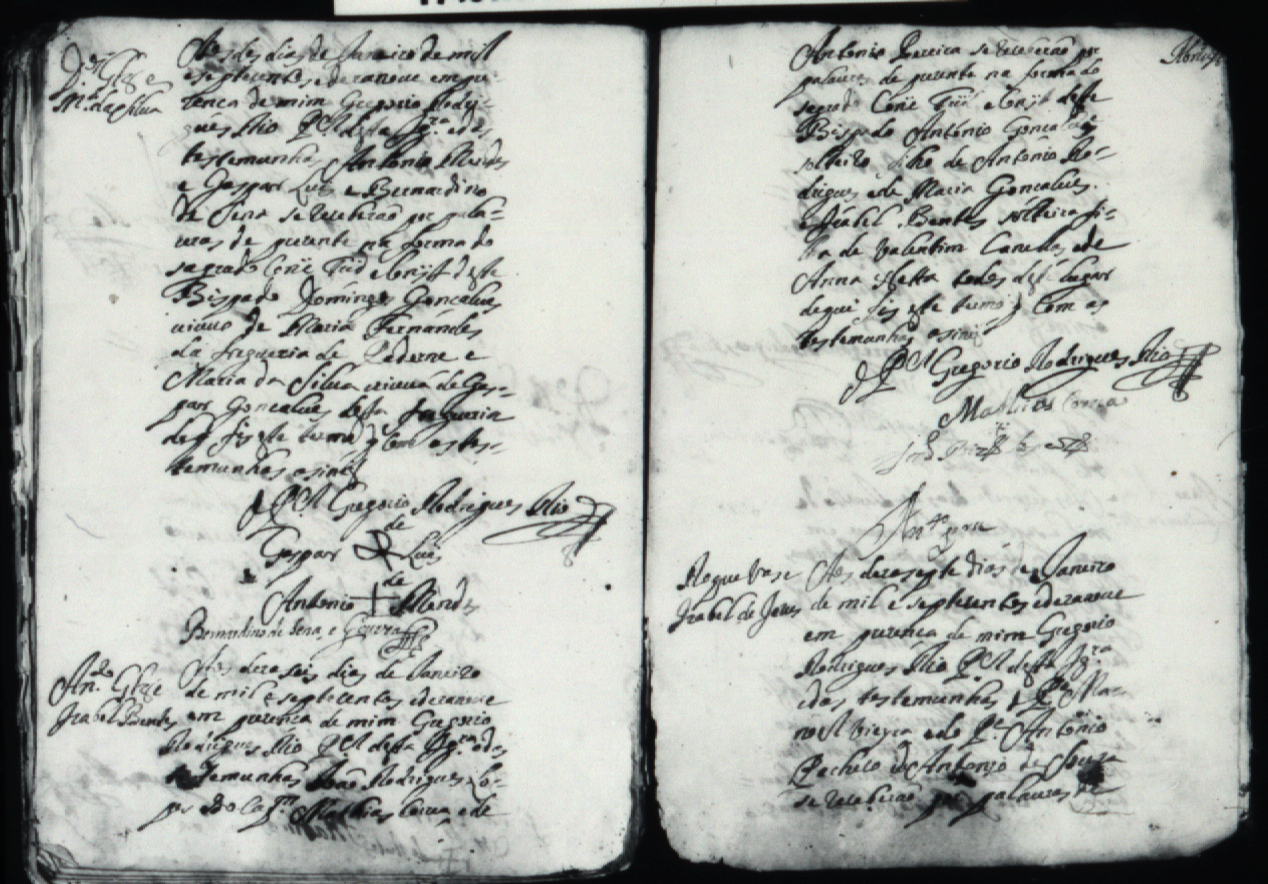 Dos Glz e
Ma da Silva
Aos des dias de Janeiro de mil
e septecentos e dezanoue em pre
zença de mim Gregorio Rodri-
gues Rio P. V. desta Frza e das
testemunhas Antonio Mendes
e Gaspar Luis e Bernardino
de Sena se receberaõ por pala-
uras de prezente na forma do
sagrado Conc Trid e Const deste
Bispado Domingos Gonçalues
uiuuo de Maria Fernandes
da freguezia de Paderne e
Maria da Silua uiuua de Gas-
par Gonçalues desta freguezia
de q fis este termo q com as tes-
temunhas asinei
O P. V. Gregorio Rodrigues Rio
de
Gaspar Luis
de
Antonio + Mendes
Bernardino de Sena e
Anto Glz e
Izabel Bentes
Aos dezaseis dias de Janeiro
de mil e septecentos e dezanoue
em prezença de mim Gregorio
Rodrigues Rio P. V. desta Frza e das
testemunhas Joaõ Rodrigues Lo-
pes e do Cap.m Mathias Correa e de
Antonio Pereira se receberaõ por
palauras de prezente na forma do
sagrado Conc Trid e Const deste
Bispado Antonio Goncalues
solteiro filho de Antonio Ro-
drigues e de Maria Goncalues.
e Izabel Bentes solteira fi-
lha de Valentim Canellas e de
Anna Netta todos deste lugar
de que fis este termo q com as
testemunhas asinei
O P. V. Gregorio Rodrigues Rio
Mathias Correa
Anto pra
Roque Vas e
Izabel de Jesus
Aos dezasepte dias de Janeiro
de mil e septecentos e dezanoue
em prezença de mim Gregorio
Rodrigues Rio P. V. desta Frza
e das testemunhas o Pe Ma-
noel Vieyra e do Pe Antonio
Pacheco e de Antonio de Souza
se receberaõ por palauras de